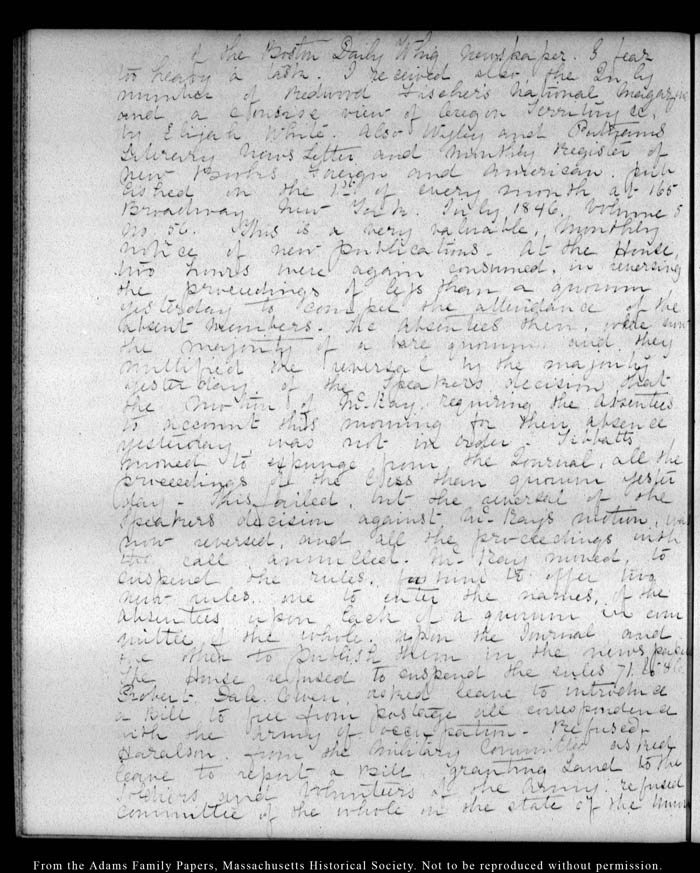 of the Boston Daily Whig newspaper. I fear
too heavy a task. I received also, the July
number of Redwood Fischer's National Magazine
and a concise view of Oregon Territory &c.
by Elijah White. Also Wiley and Putnam's
Literary News Letter and Monthly Register of
new Books Foreign and American. pub
lished on the 1st of every month at 165
Broadway New York. July 1846, Volume 5
No. 56. This is a very valuable, monthly
notice of new publications. At the House,
two hours were again consumed, in reversing
the proceedings of less than a quorum
yesterday to compel the attendance of the
absent members. The absentees then, were now
the majority of a bare quorum and they
nullified the reversal by the majority
yesterday, of the Speakers decision that
the motion of McKay, requiring the absentees
to account this morning for their absence
yesterday was not in order. Tibbatts
moved to expunge from the Journal, all the
proceedings of the less than quorum yester
day - This failed, but the reversal of the
Speakers decision against McKay's motion, was
now reversed, and all the proceedings with
the call annulled. McKay moved, to
suspend the rules, to offer two
new rules. one to enter the names, of the
absentees upon lack of a quorum in com
mittee of the whole. upon the Journal, and
the other to publish them in the newspapers
The House refused to suspend the rules 71. to
Robert Dale Owen, asked leave to introduce
a Bill to free from postage all correspondence
with the army of occupation - Refused.
Haralson. from the Military Committee asked
leave to report a Bill granting Land to the
Soldiers and Volunteers of the Army. refused
Committee of the whole on the state of the Union
From the Adams Family Papers, Massachusetts Historical Society. Not to be reproduced without permission.